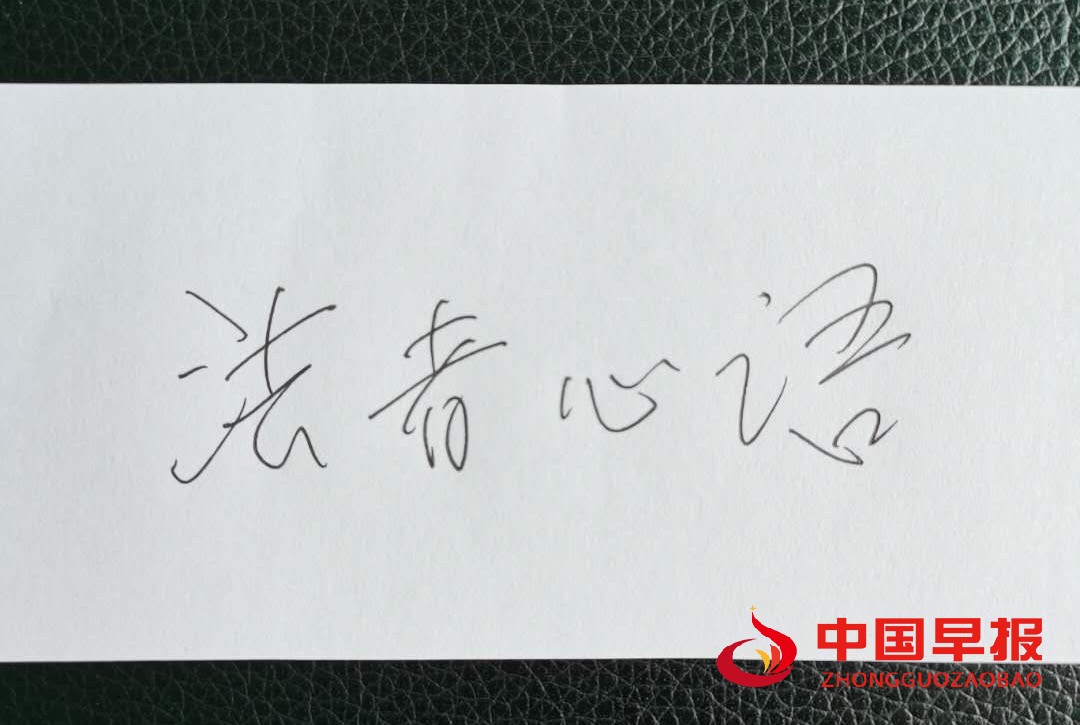 法者心语
中国早报
ZHONGGUOZAOBAO